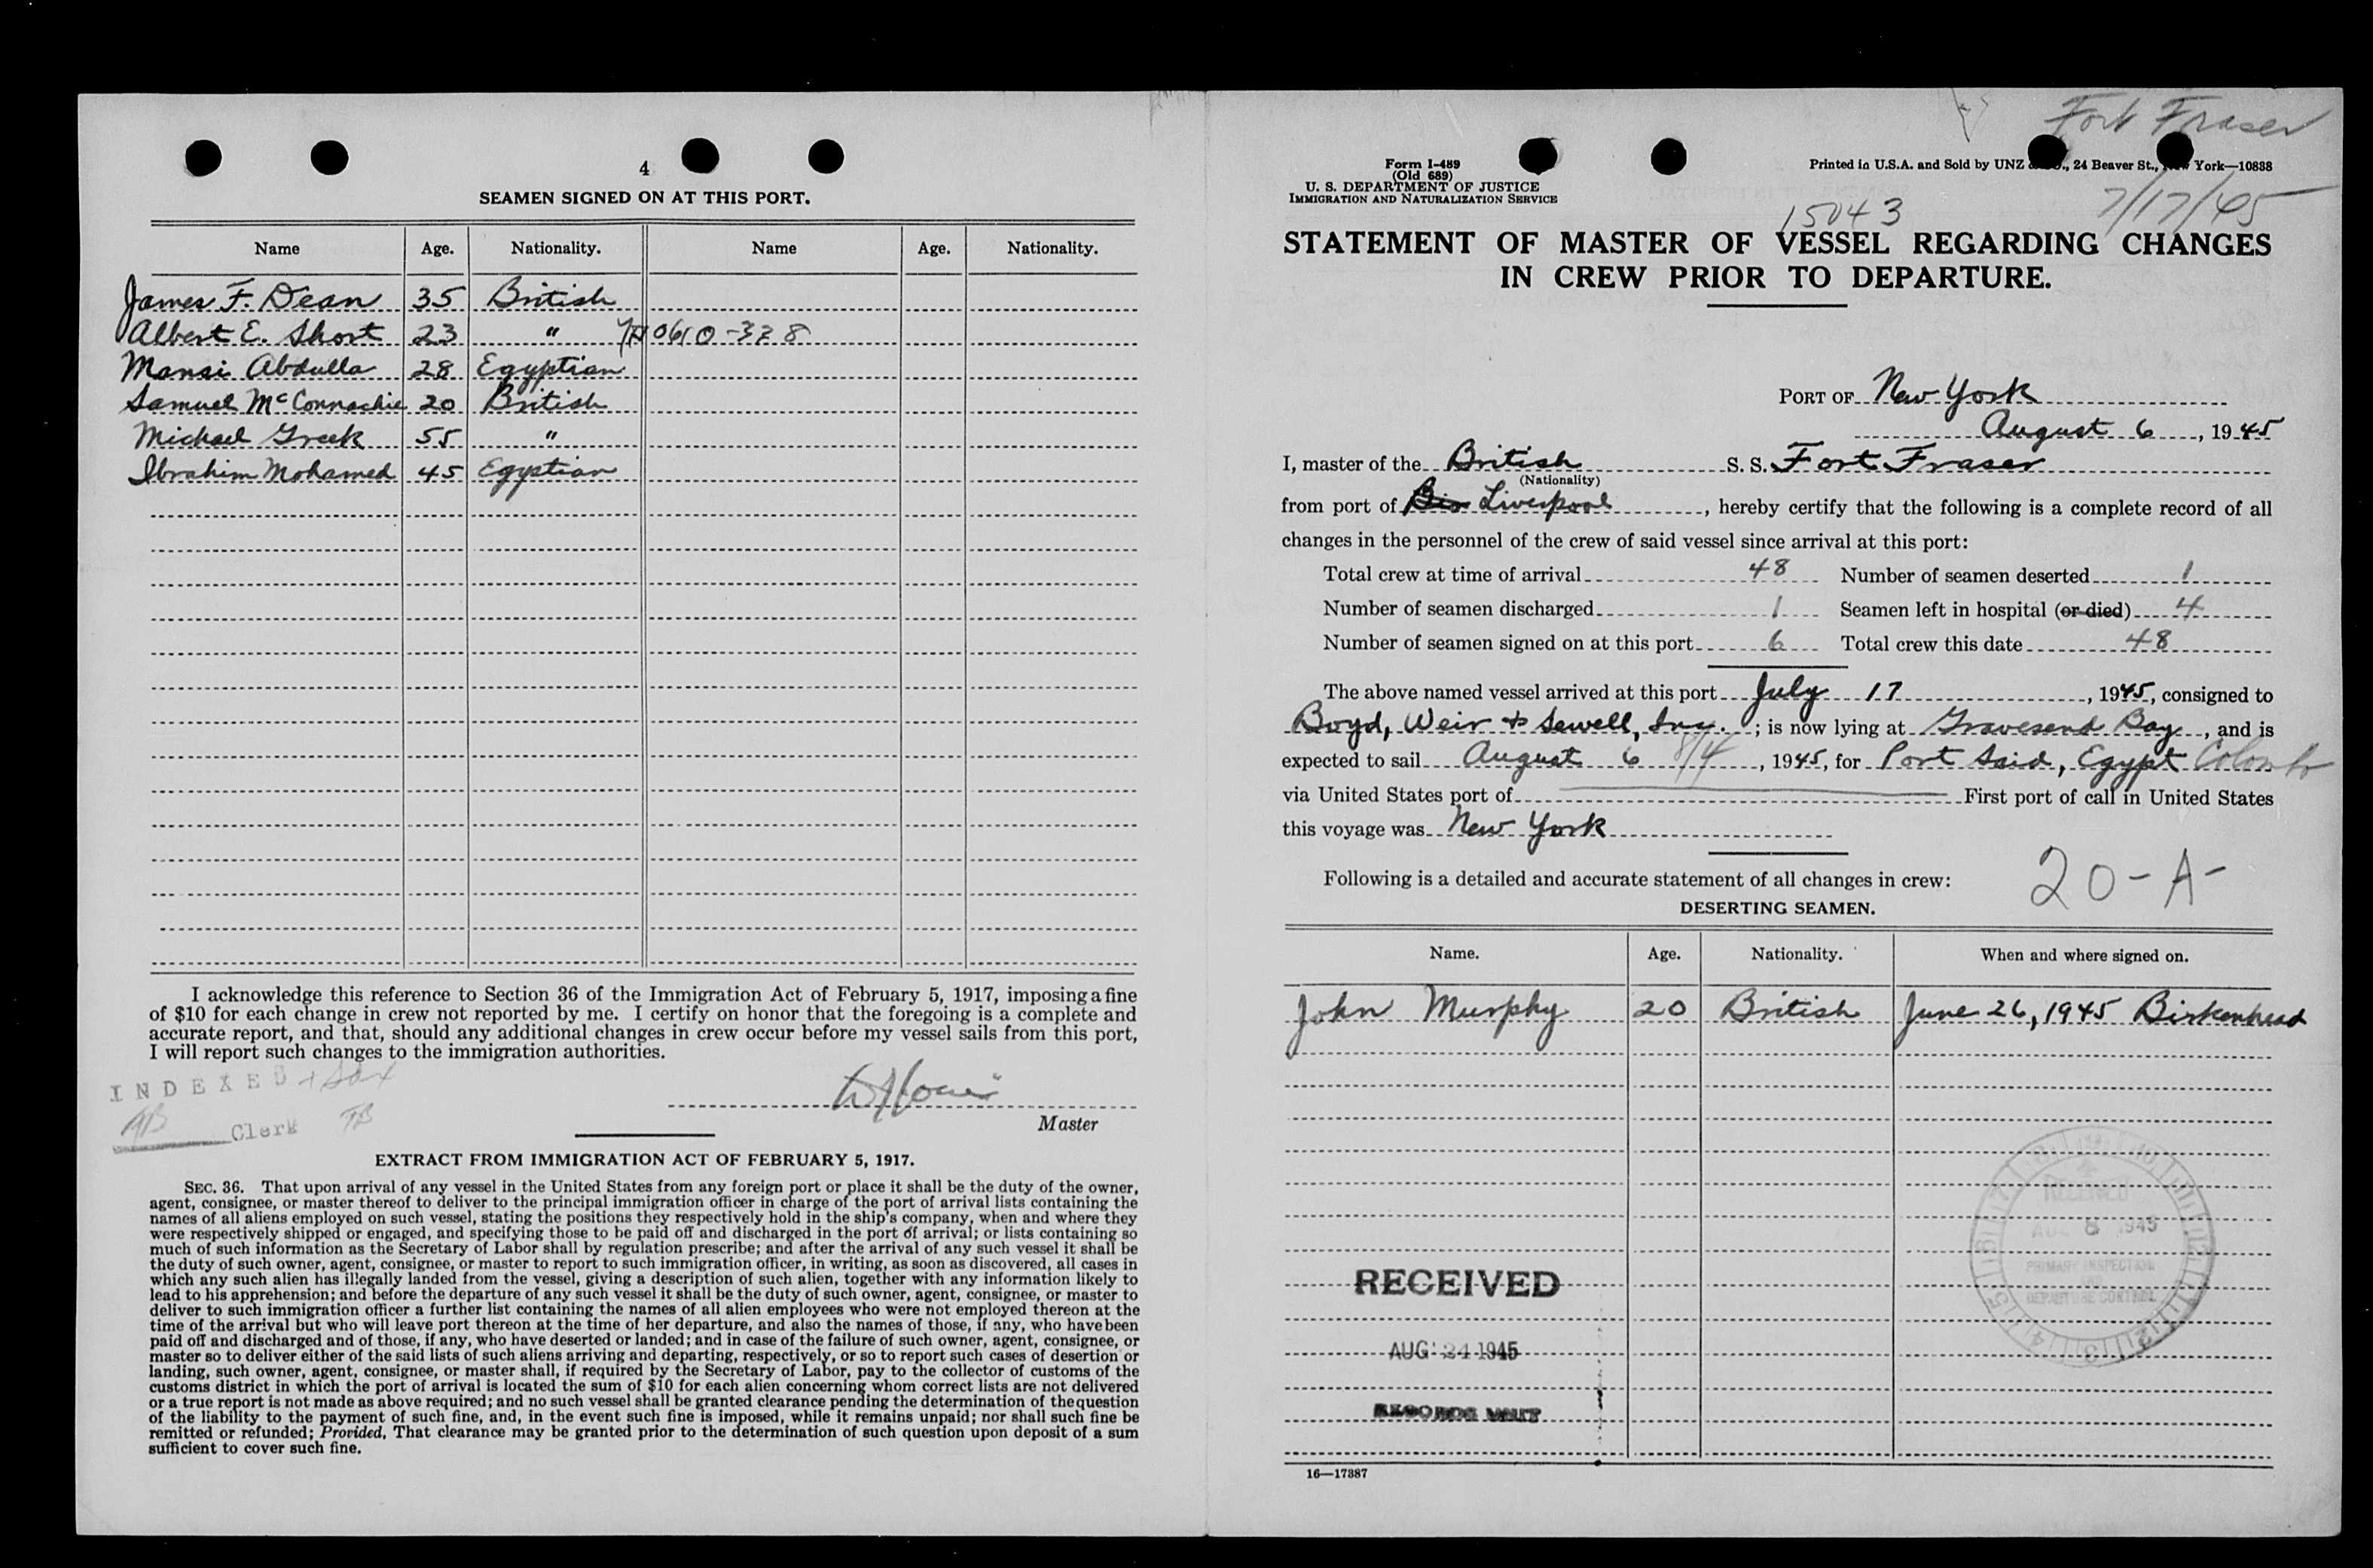 4
SEAMEN SIGNED ON AT THIS PORT.
Name Age. Nationality. Name Age. Nationality.
James F. Dean 35 British
Albert E. Short 23 "
Mansi Abdulla 28 Egyptian
Samuel McConnachie 20 British
Michael Greek 55 "
Ibrahim Mohamed 45 Egyptian
I acknowledge this reference to Section 36 of the Immigration Act of February 5, 1917, imposing a fine
of $10 for each change in crew not reported by me. I certify on honor that the foregoing is a complete and
accurate report, and that, should any additional changes in crew occur before my vessel sails from this port,
I will report such changes to the immigration authorities.
INDEXED
Master
Clerk
EXTRACT FROM IMMIGRATION ACT OF FEBRUARY 5, 1917.
SEC. 36. That upon arrival of any vessel in the United States from any foreign port or place it shall be the duty of the owner,
agent, consignee, or master thereof to deliver to the principal immigration officer in charge of the port of arrival lists containing the
names of all aliens employed on such vessel, stating the positions they respectively hold in the ship's company, when and where they
were respectively shipped or engaged, and specifying those to be paid off and discharged in the port of arrival; or lists containing so
much of such information as the Secretary of Labor shall by regulation prescribe; and after the arrival of any such vessel it shall be
the duty of such owner, agent, consignee, or master to report to such immigration officer, in writing, as soon as discovered, all cases in
which any such alien has illegally landed from the vessel, giving a description of such alien, together with any information likely to
lead to his apprehension; and before the departure of any such vessel it shall be the duty of such owner, agent, consignee, or master to
deliver to such immigration officer a further list containing the names of all alien employees who were not employed thereon at the
time of the arrival but who will leave port thereon at the time of her departure, and also the names of those, if any, who have been
paid off and discharged and of those, if any, who have deserted or landed; and in case of the failure of such owner, agent, consignee, or
master so to deliver either of the said lists of such aliens arriving and departing, respectively, or so to report such cases of desertion or
landing, such owner, agent, consignee, or master shall, if required by the Secretary of Labor, pay to the collector of customs of the
customs district in which the port of arrival is located the sum of $10 for each alien concerning whom correct lists are not delivered
or a true report is not made as above required; and no such vessel shall be granted clearance pending the determination of the question
of the liability to the payment of such fine, and, in the event such fine is imposed, while it remains unpaid; nor shall such fine be
remitted or refunded; Provided, That clearance may be granted prior to the determination of such question upon deposit of a sum
sufficient to cover such fine.
Fort Fraser
Form I-489
(Old 689)
U. S. DEPARTMENT OF JUSTICE
IMMIGRATION AND NATURALIZATION SERVICE
Printed in U.S.A. and Sold by UNZ 24 Beaver St., York—10838
7/17/45
15043
STATEMENT OF MASTER OF VESSEL REGARDING CHANGES
IN CREW PRIOR TO DEPARTURE.
PORT OF New York
August 6, 1945
I, master of the British S. S. Fort Fraser
(Nationality)
from port of Liverpool, hereby certify that the following is a complete record of all
changes in the personnel of the crew of said vessel since arrival at this port:
Total crew at time of arrival 48 Number of seamen deserted 1
Number of seamen discharged 1 Seamen left in hospital (or died) 4
Number of seamen signed on at this port 6 Total crew this date 48
The above named vessel arrived at this port July 17, 1945, consigned to
Boyd, Weir & Sewell, Inc.; is now lying at Gravesend Bay, and is
expected to sail August 6 8/4, 1945, for Port Said, Egypt Colombo
via United States port of First port of call in United States
this voyage was New York
20-A-
Following is a detailed and accurate statement of all changes in crew:
DESERTING SEAMEN.
Name. Age. Nationality. When and where signed on.
John Murphy 20 British June 26, 1945 Birkenhead
RECEIVED
AUG 8 1945
PRIMARY INSPECTION
AND
DEPARTURE CONTROL
RECEIVED
AUG 24 1945
RECORDS UNIT
16—17387